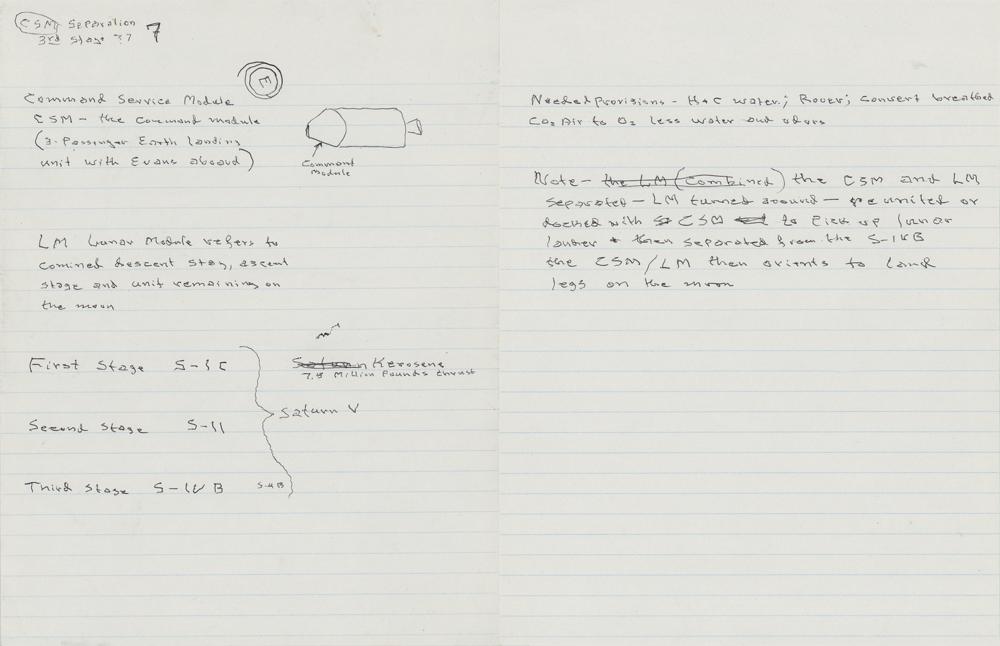 CSM Separation
3rd Stage ?7 7
E
Command Service Module
CSM - the command module
(3-Passenger Earth landing
unit with Evans aboard)
Command
Module
LM Lunar Module refers to
comined descent stag, ascent
stage and unit remaining on
the moon
First Stage S-1C
Saturn Kerosene
7.5 Million Pounds thrust
Saturn V
Second Stage S-11
Third Stage S-IVB S-4B
Needed Provisions - H+C water; Rover; convert breathed
CO2 Air to O2 less water and odors
Note - the LM (Combined) the CSM and LM
separated - LM turned around - reunited or
docked with CSM to Pick up lunar
lander + then separated from the S-IVB
the CSM/LM then orients to land
legs on the moon